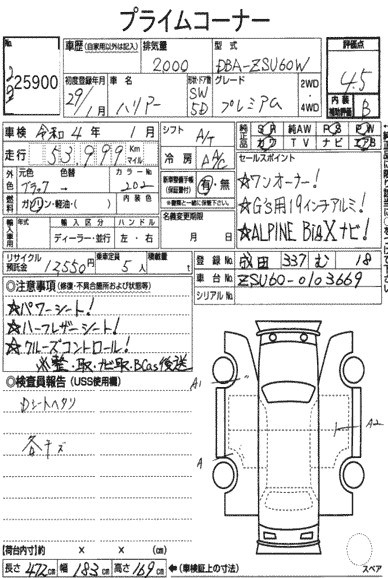 プライムコーナー
No. 25900
車歴 (自家用以外は記入)
排気量 2,000
型式 DBA-ZSU60W
評価点 4.5
内装補助評価 B
初度登録年月 29年 1月
車名 ハリアー
形状・ドア数 SW 5D
グレード プレミアム
2WD・4WD
車検 令和4年 1月
シフト A/T
純正品 SR 純AW PS PW
カワ TV ナビ エアB
走行 53,999 Km マイル
冷房 AAC
セールスポイント
☆ワンオーナー!
☆G's用19インチアルミ!
☆ALPINE BigXナビ!
外装 元色 ブラック → 色替
カラーNo. 202
燃料 ガソリン・軽油・( )
内装色
新車整備手帳(保証書付) 有・無
名義変更期限 月 日
輸入車用 年式 輸入区分 ディーラー・並行
ハンドル 左・右
リサイクル預託金 12550円
乗車定員 5人
積載量 t
登録No. 成田 337 む 18
車台No. ZSU60-0103669
シリアルNo.
◎注意事項 (修復・不具合箇所および状態等)
☆パワーシート!
☆ハーフレザーシート!
☆クルーズコントロール!
※整・取・ナビ取・BCas後送
◎検査員報告 (USS使用欄)
Dシートヘタリ
各キズ
A1
A2
A
【荷台内寸】約 × × (cm)
長さ 472cm 幅 183cm 高さ 169cm
←(車検証上の寸法)
スペア